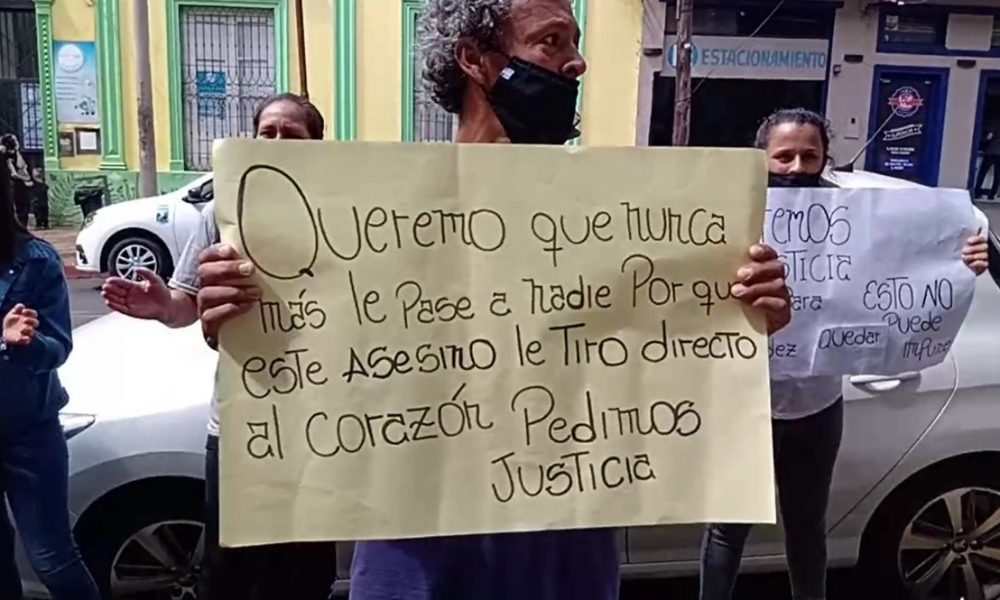 ESTACIONAMIENTO
Queremo que nunca
más le Pase a nadie Por qu
este Asesino le Tiro directo
al corazón Pedimos
JUSTICIA
emos
ticia
Para
ESTO NO
Puede
dez Quedar